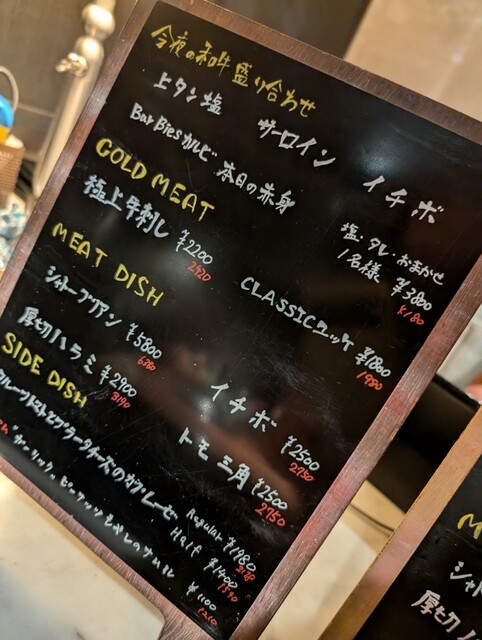 今夜の和牛盛り合わせ
上タン塩 サーロイン イチボ
BarBiesカルビ 本日の赤身
塩・タレ・おまかせ
1名様 ¥3800
4180
COLD MEAT
極上牛刺し ¥2200
2420
CLASSICユッケ ¥1800
1980
MEAT DISH
シャトーブリアン ¥5800
6380
イチボ ¥2500
2750
厚切ハラミ ¥2900
3190
トモ三角 ¥2500
2750
SIDE DISH
フルーツトマトとブラータチーズのカプレーゼ
Regular ¥1980
Half ¥1400
1540
¥1100
1210
M
シャ
厚切